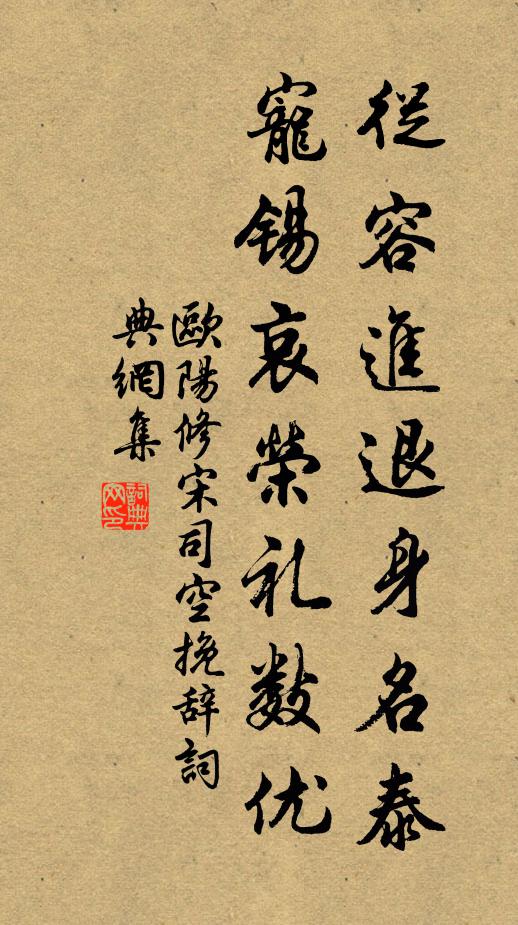 從容進退身名泰
寵锡哀榮礼数优
歐陽修宋司空挽辞詞
典網集
詞典网印